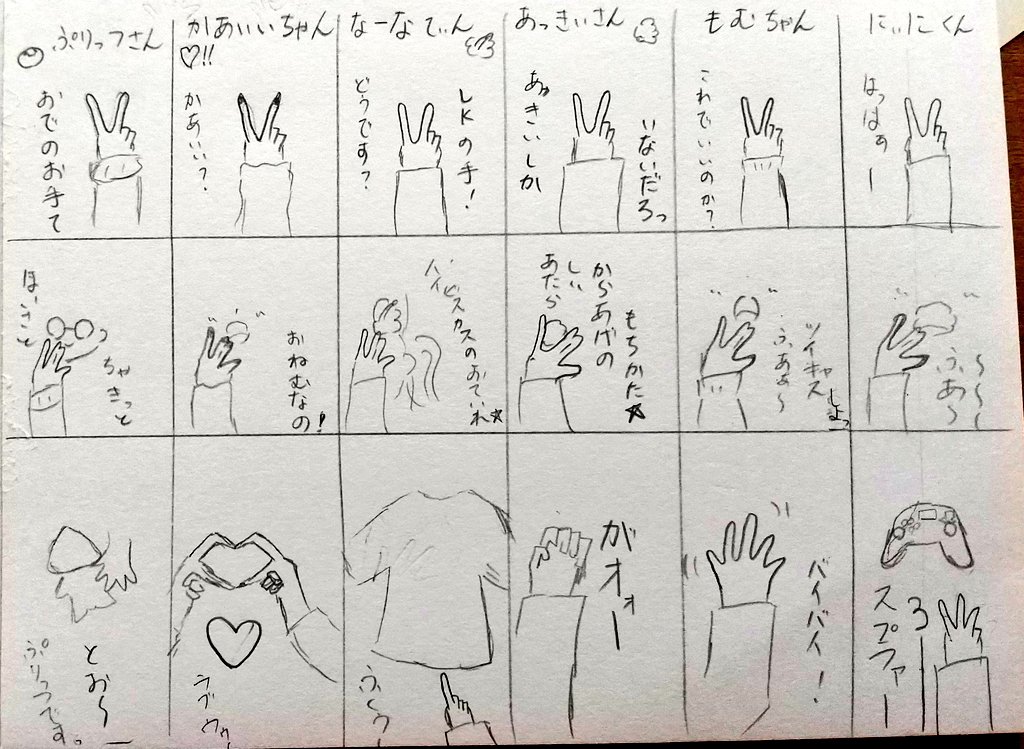 ぷりっつさん
おでのお手て
かあいいちゃん
♡!!
かあいい?
なーなてぃん
LKの手!
どうです?
あっきぃさん
いないだろっ
あっきいしか
もむちゃん
これでいいのか?
にぃにくん
はっはぁー
ほいさっと
ちゃきっと
おねむなの!
ハイビスカスのおていれ☆
もちかた☆
からあげの
あたらしい
ツイキャスしよっ
ふあぁ〜
ふあ〜
とお〜
ぷりっつです。
ラブゥゥ
がオォー
バイバイ!
3ー
スプラァー